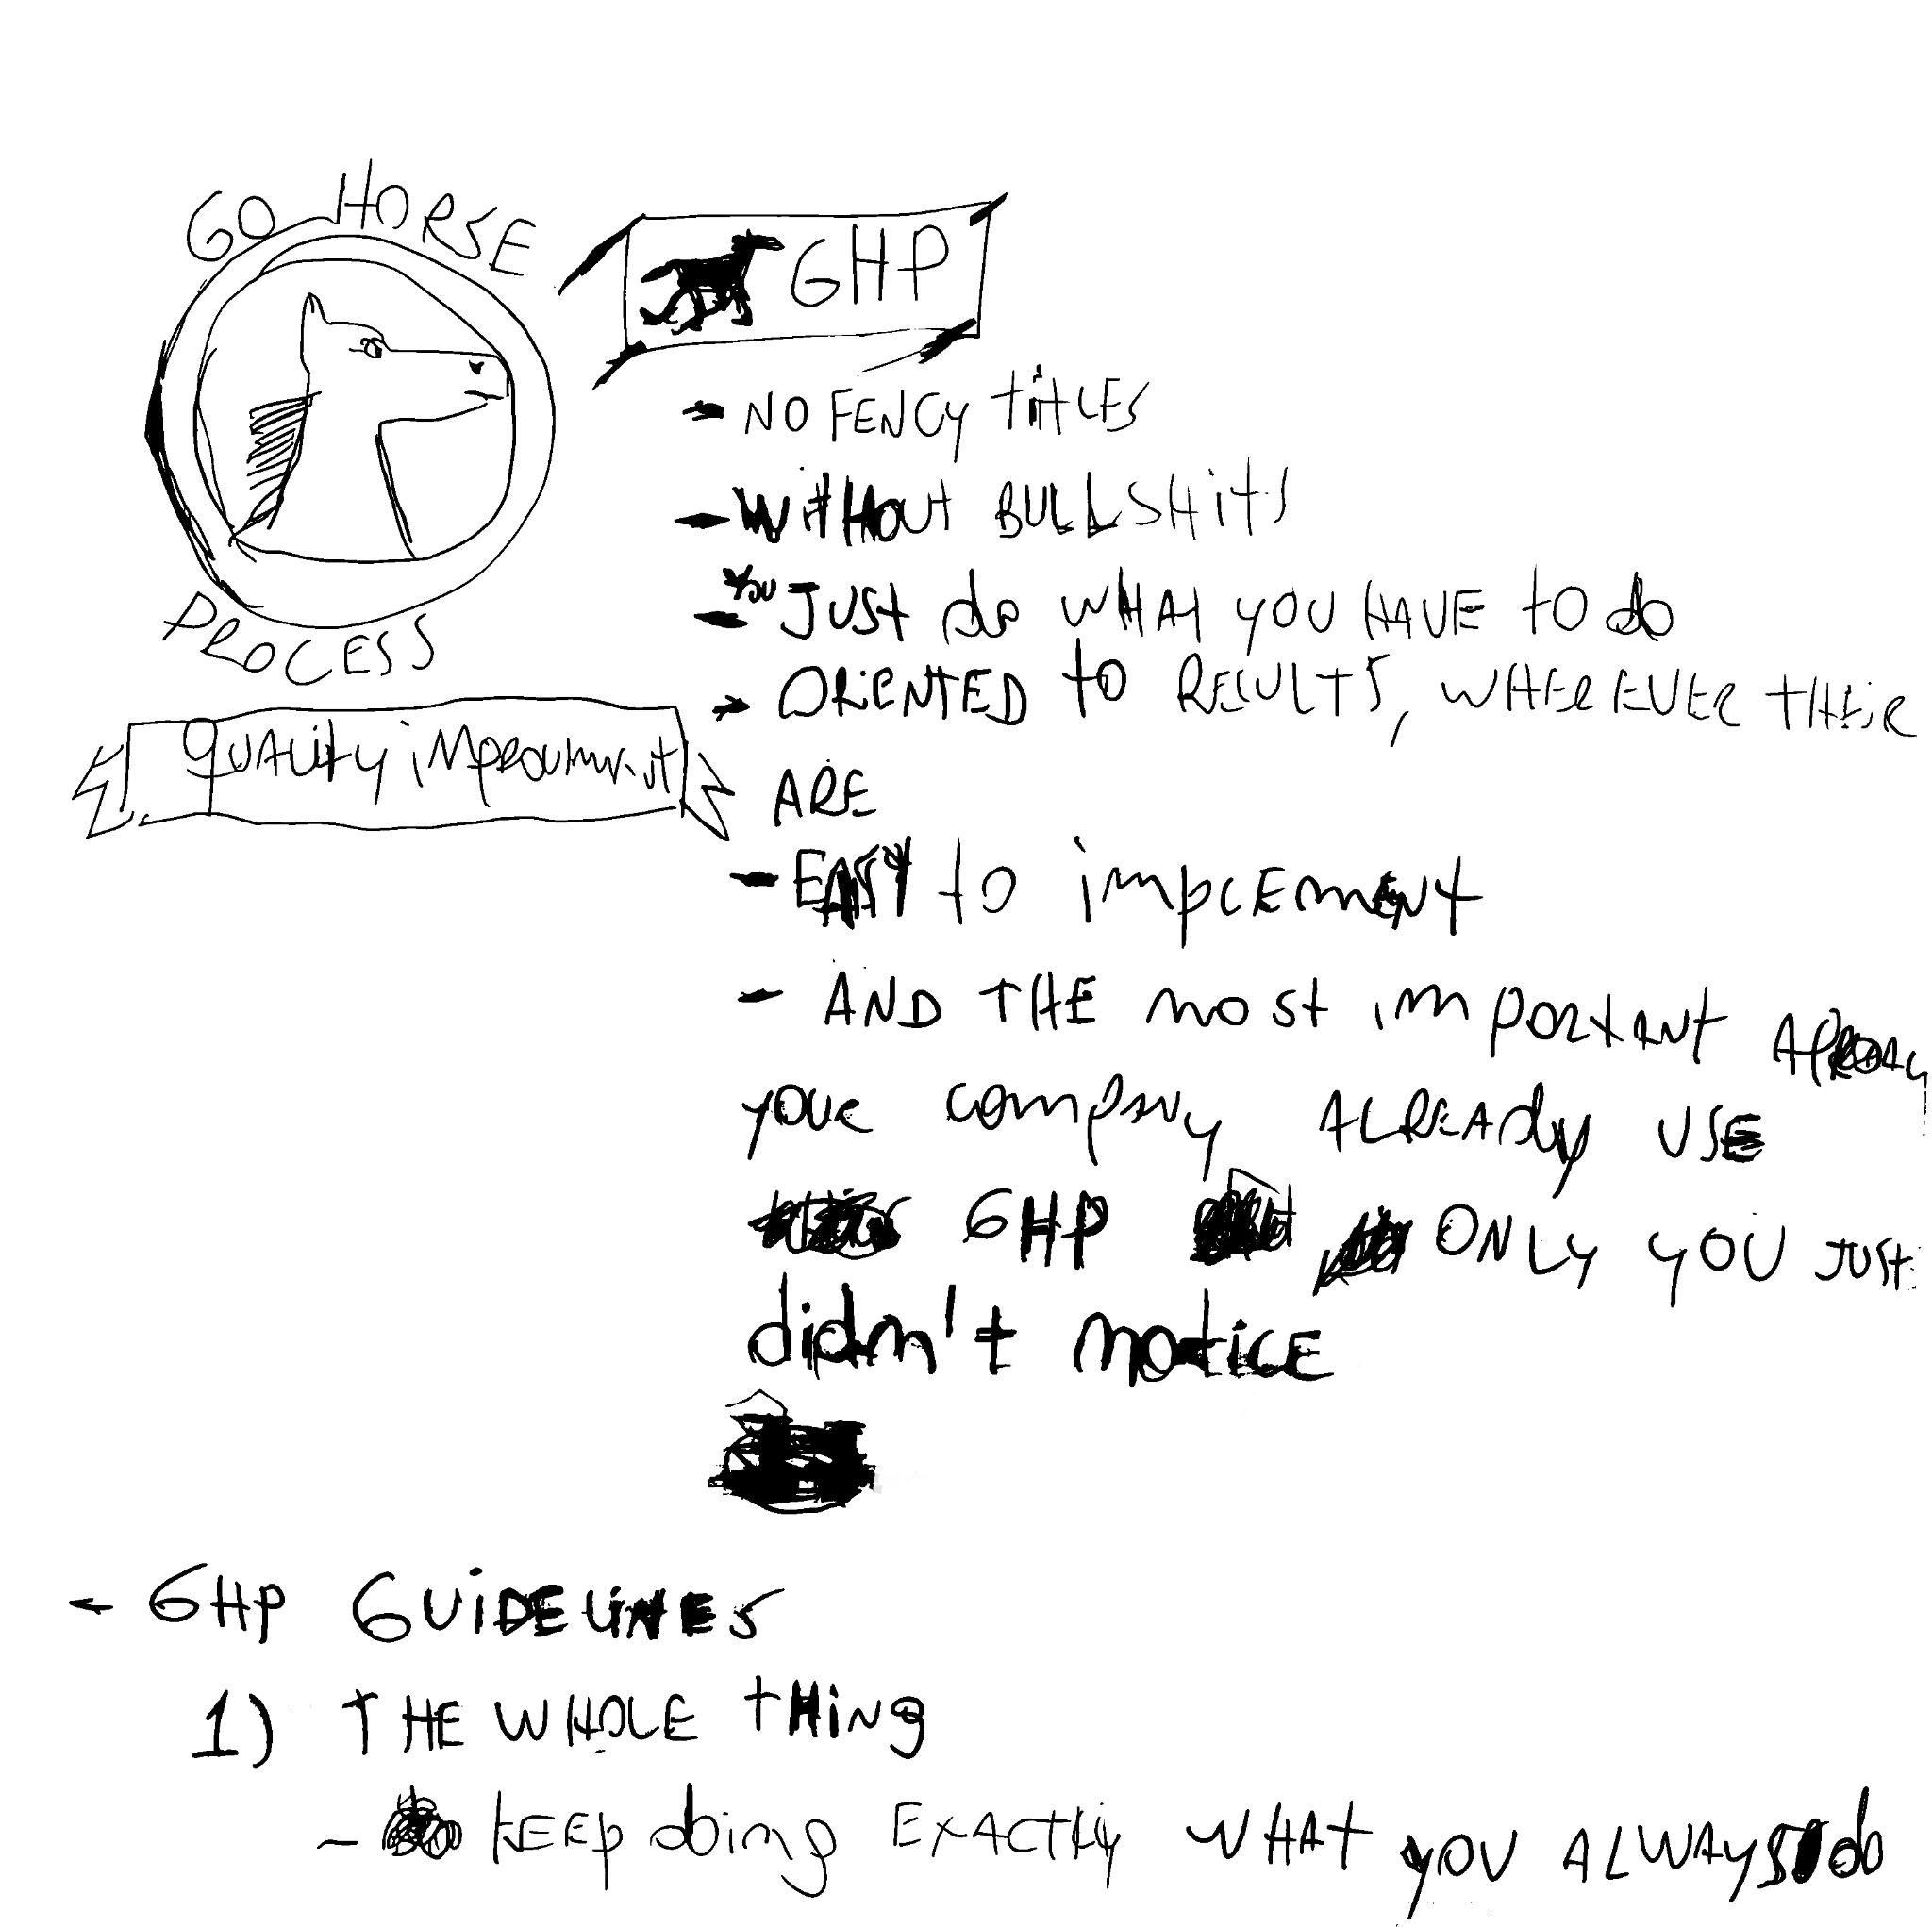 GO HORSE
PROCESS
QUALITY iMPROVEMENT
GHP
- NO FENCY TITLES
- WITHOUT BULLSHITS
- YOU JUST do WHAT YOU HAVE TO do
- ORIENTED TO RESULTS, WHEREVER THEIR
ARE
- EASY to implement
- AND THE most important
your company ALREADY USE
GHP ONLY YOU JUST
didn't notice
- GHP GUIDELINES
1) THE WHOLE THING
- KEEP doing EXACTLY WHAT YOU ALWAYS do